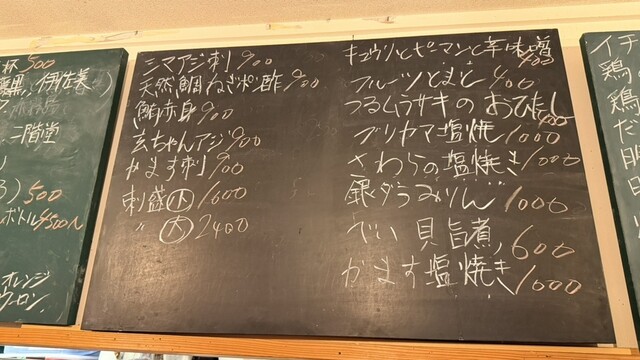 杯 500
黒(伊佐巻)
二階堂
) 500
ボトル4500
オレンジ
ウーロン
シマアジ刺 900
天然鯛ねぎポン酢 900
鮪赤身 900
玄ちゃんアジ 900
かます刺 900
刺盛 小 1600
〃 大 2400
キュウリとピーマンと辛味噌 400
フルーツとまと 400
つるムラサキのおひたし 400
ブリカマ塩焼 1000
さわらの塩焼き 1000
銀ダラみりん 1000
つぶ貝旨煮 600
かます塩焼き 1000
イチ
鶏
鶏
だ